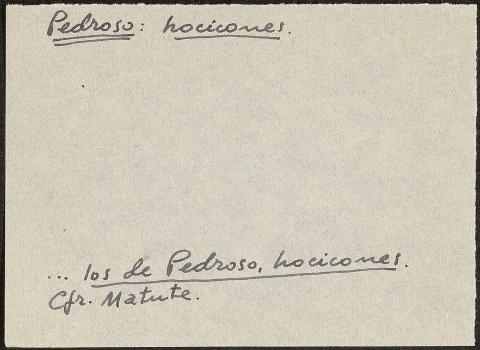 Pedroso: hocicones.
... los de Pedroso, hocicones.
Cfr. Matute.